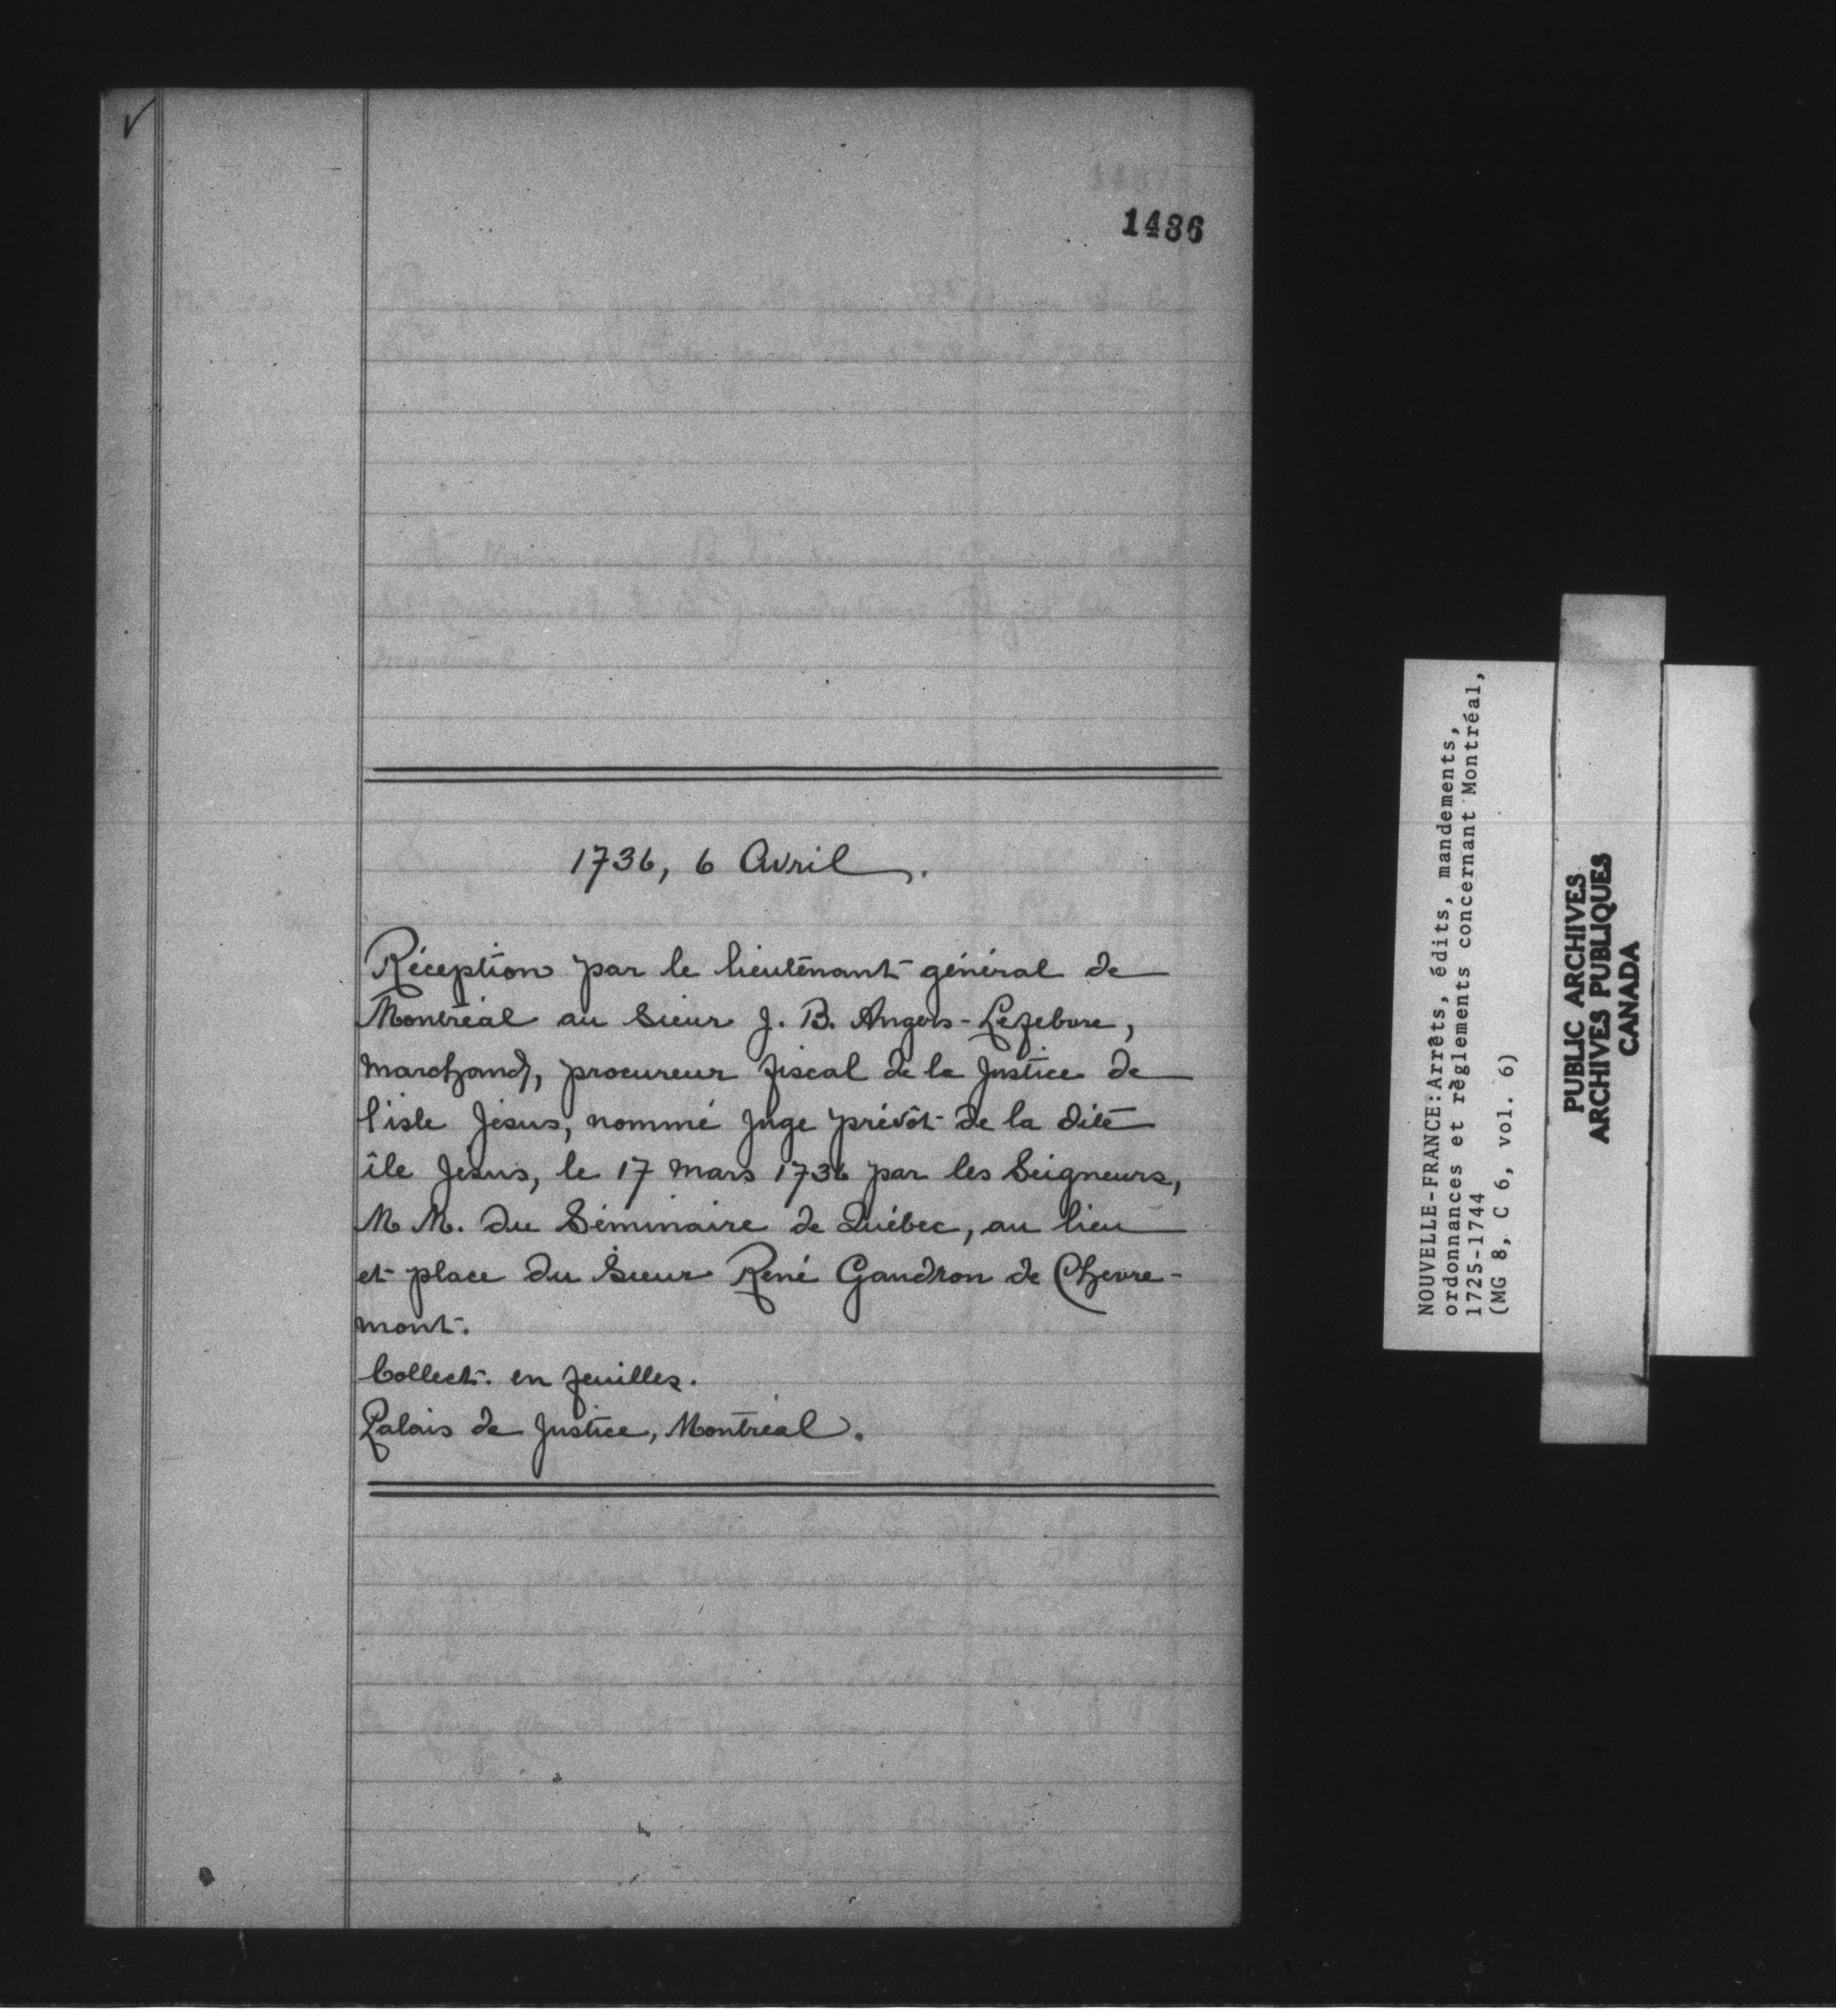 1486
1736, 6 Avril.
Réception par le lieutenant général de
Montréal au Sieur J. B. Angers-Lefebvre,
marchand, procureur fiscal de la Justice de
l'isle Jésus, nommé juge prévôt de la dite
île Jésus, le 17 mars 1736 par les Seigneurs,
M M. du Séminaire de Québec, au lieu
et place du Sieur René Gaudron de Chevre-
mont.
Collect. en feuilles.
Palais de Justice, Montréal.
NOUVELLE-FRANCE: Arrêts, édits, mandements,
ordonnances et règlements concernant Montréal,
1725-1744
(MG 8, C 6, vol. 6)
PUBLIC ARCHIVES
ARCHIVES PUBLIQUES
CANADA